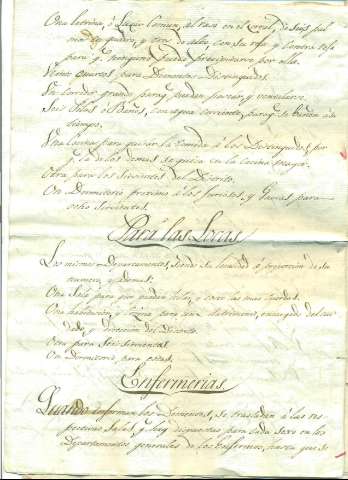 Una letrina, ò Lugar Comun, al raso en el Corral, de Seis pal
mos en quadro, y tres de alto, con su rexa y Contra rexa
para q. ninguno pueda precipitarse por ella.
Veinte quartos para Dementes Distinguidos.
Un Corredor grande para q. puedan pasear, y ventilarse.
Seis Pilas ò Baños, con agua corriente, para q. se bañen à su
tiempo.
Una Cocina para guisar la Comida à los Distinguidos, por
q. la de los demas se guisa en la Cocina mayor.
Otra para los Sirvientes del Distrito.
Un Dormitorio proximo à los furiosos, y Gavias para
ocho Sirvientes.
Para las Locas
Los mismos Departamentos, según su localidad ò proporcion de su
numero, y demas.
Una Sala para que puedan hilar, y coser las mas Cuerdas.
Una habitacion, y Cocina para un Matrimonio, encargado del cui
dado, y direccion del Distrito.
Otra para Seis Sirvientas
Un Dormitorio para estas.
Enfermerias
Quando enferman los Dementes, se trasladan à las res
pectivas Salas, q. hay destinadas para cada Sexo en los
Departamentos generales de los Enfermos, hasta que se